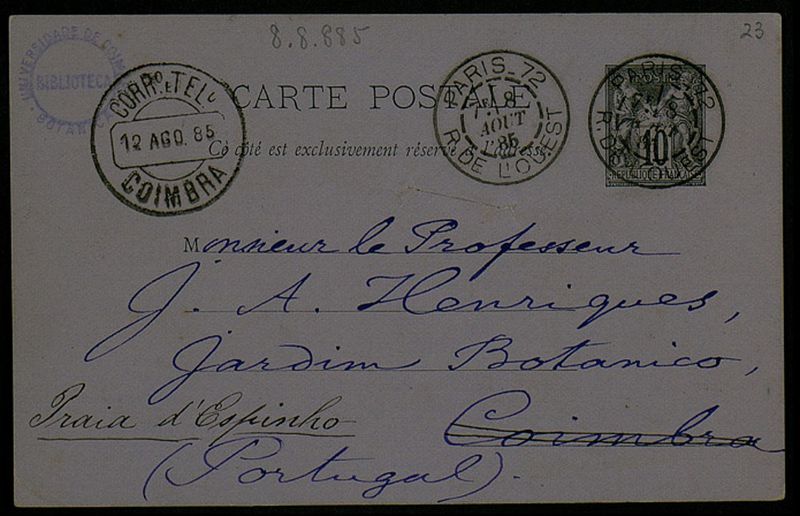 8.8.885
23
UNIVERSIDADE DE COIMBRA
BIBLIOTECA
BOTANICA
CORRO E TELO
12 AGO. 85
COIMBRA
CARTE POSTALE
PARIS 72
8
AOUT
85
R. DE L'OUEST
PARIS 72
R. DE L'OUEST
POSTES
10
REPUBLIQUE FRANCAISE
Ce côté est exclusivement réservé à l'adresse.
Monsieur le Professeur
J. A. Henriques,
Jardim Botanico,
Praia d'Espinho
Coimbra
(Portugal).